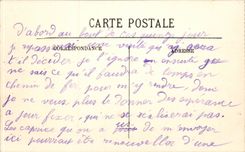 D'abord au bout de ces quinze jours
CARTE POSTALE
CORRESPONDANCE ADRESSE
je une visite qui
t-il décider je l'ignore ensuite je
ne sais ce qu'il faudra de temps en
chemin de fer, pour m'y rendre. Donc
je ne veux plus te donner des espérances
à jour fixes, qui ne se réaliseraient pas.
Les caprices qu'on a eus de m'envoyer
ici pourraient être renouvellés d'une